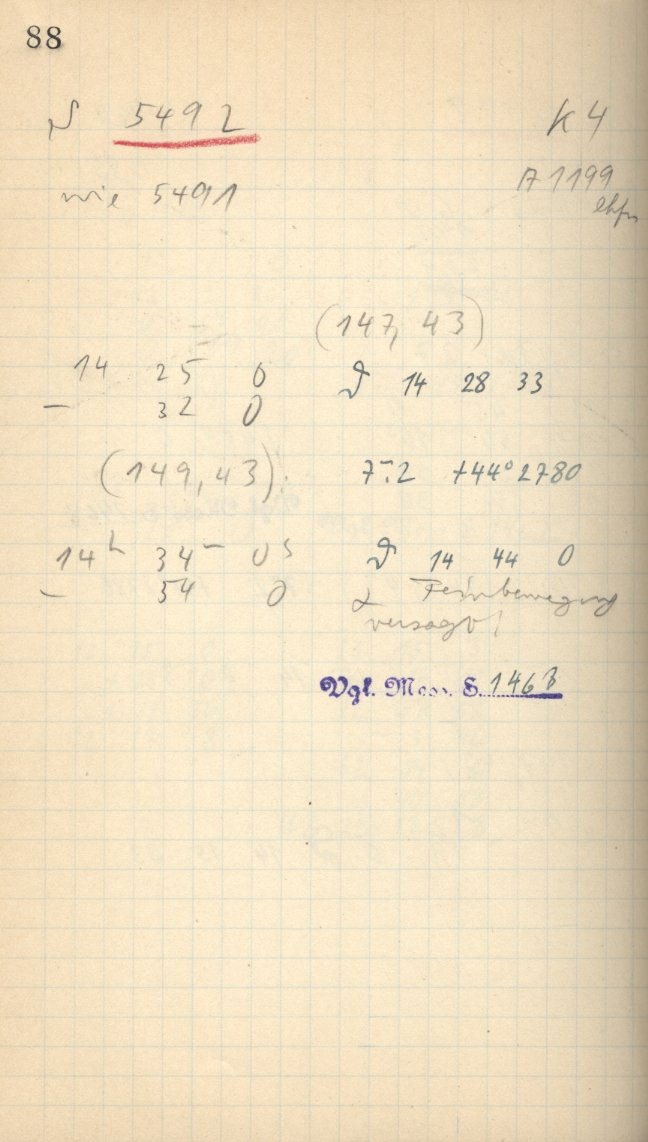 88
N 5492 K 4
wie 5491 A 1199
(147, 43)
14 25 0 ϑ 14 28 33
– 32 0
(149, 43) 7m.2 +44° 2780
14h 34m 0s ϑ 14 44 0
– 54 0 α Feinbewegung
versagt!
Vgl. Mess. S. 146